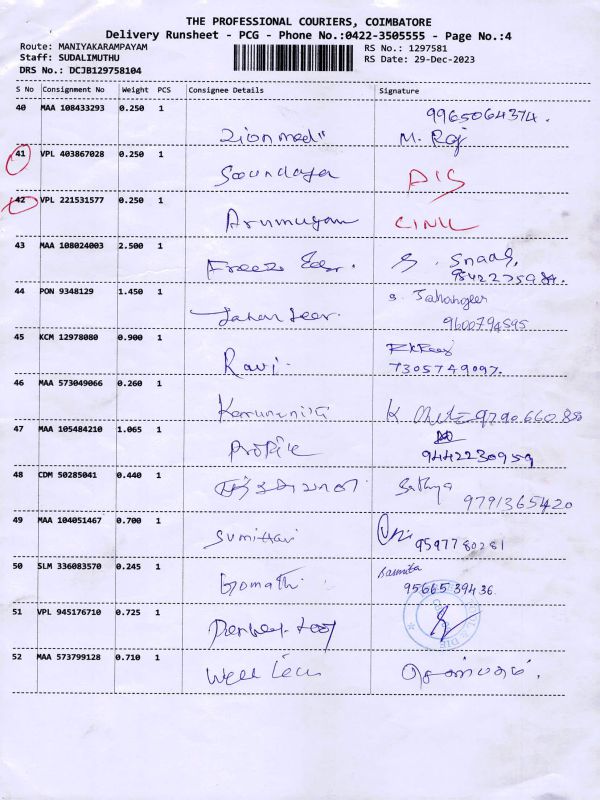 THE PROFESSIONAL COURIERS, COIMBATORE
Delivery Runsheet - PCG - Phone No.:0422-3505555 - Page No.:4
Route: MANIYAKARAMPAYAM RS No.: 1297581
Staff: SUDALIMUTHU RS Date: 29-Dec-2023
DRS No.: DCJB129758104
S No Consignment No Weight PCS Consignee Details Signature
40 MAA 108433293 0.250 1 9965064374.
M. Raj
41 VPL 403867028 0.250 1
Soundarya DIS
42 VPL 221531577 0.250 1
Arumugam
43 MAA 108024003 2.500 1
Freeze
44 PON 9348129 1.450 1 Jahangeer
9600794595
45 KCM 12978080 0.900 1
Ravi. 7305749097.
46 MAA 573049066 0.260 1
Karunanithi K
47 MAA 105484210 1.065 1
Profile 9442230959
48 CDM 50285041 0.440 1 Sathya
9791365420
49 MAA 104051467 0.700 1
9597780281
50 SLM 336083570 0.245 1
Gomathi 9566539436
51 VPL 945176710 0.725 1
52 MAA 573799128 0.710 1
Well